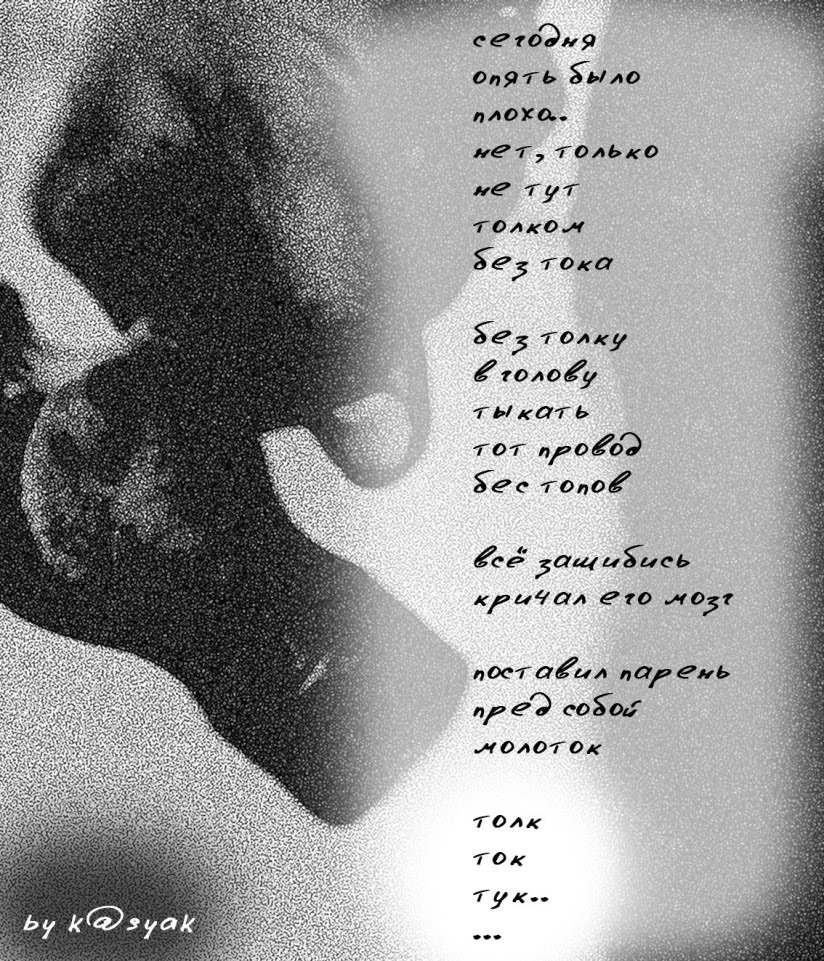 сегодня
опять было
плохо..
нет, только
не тут
толком
без тока
без толку
в голову
тыкать
тот провод
бес топов
всё зашибись
кричал его мозг
поставил парень
пред собой
молоток
толк
ток
тук..
...
by k@syak